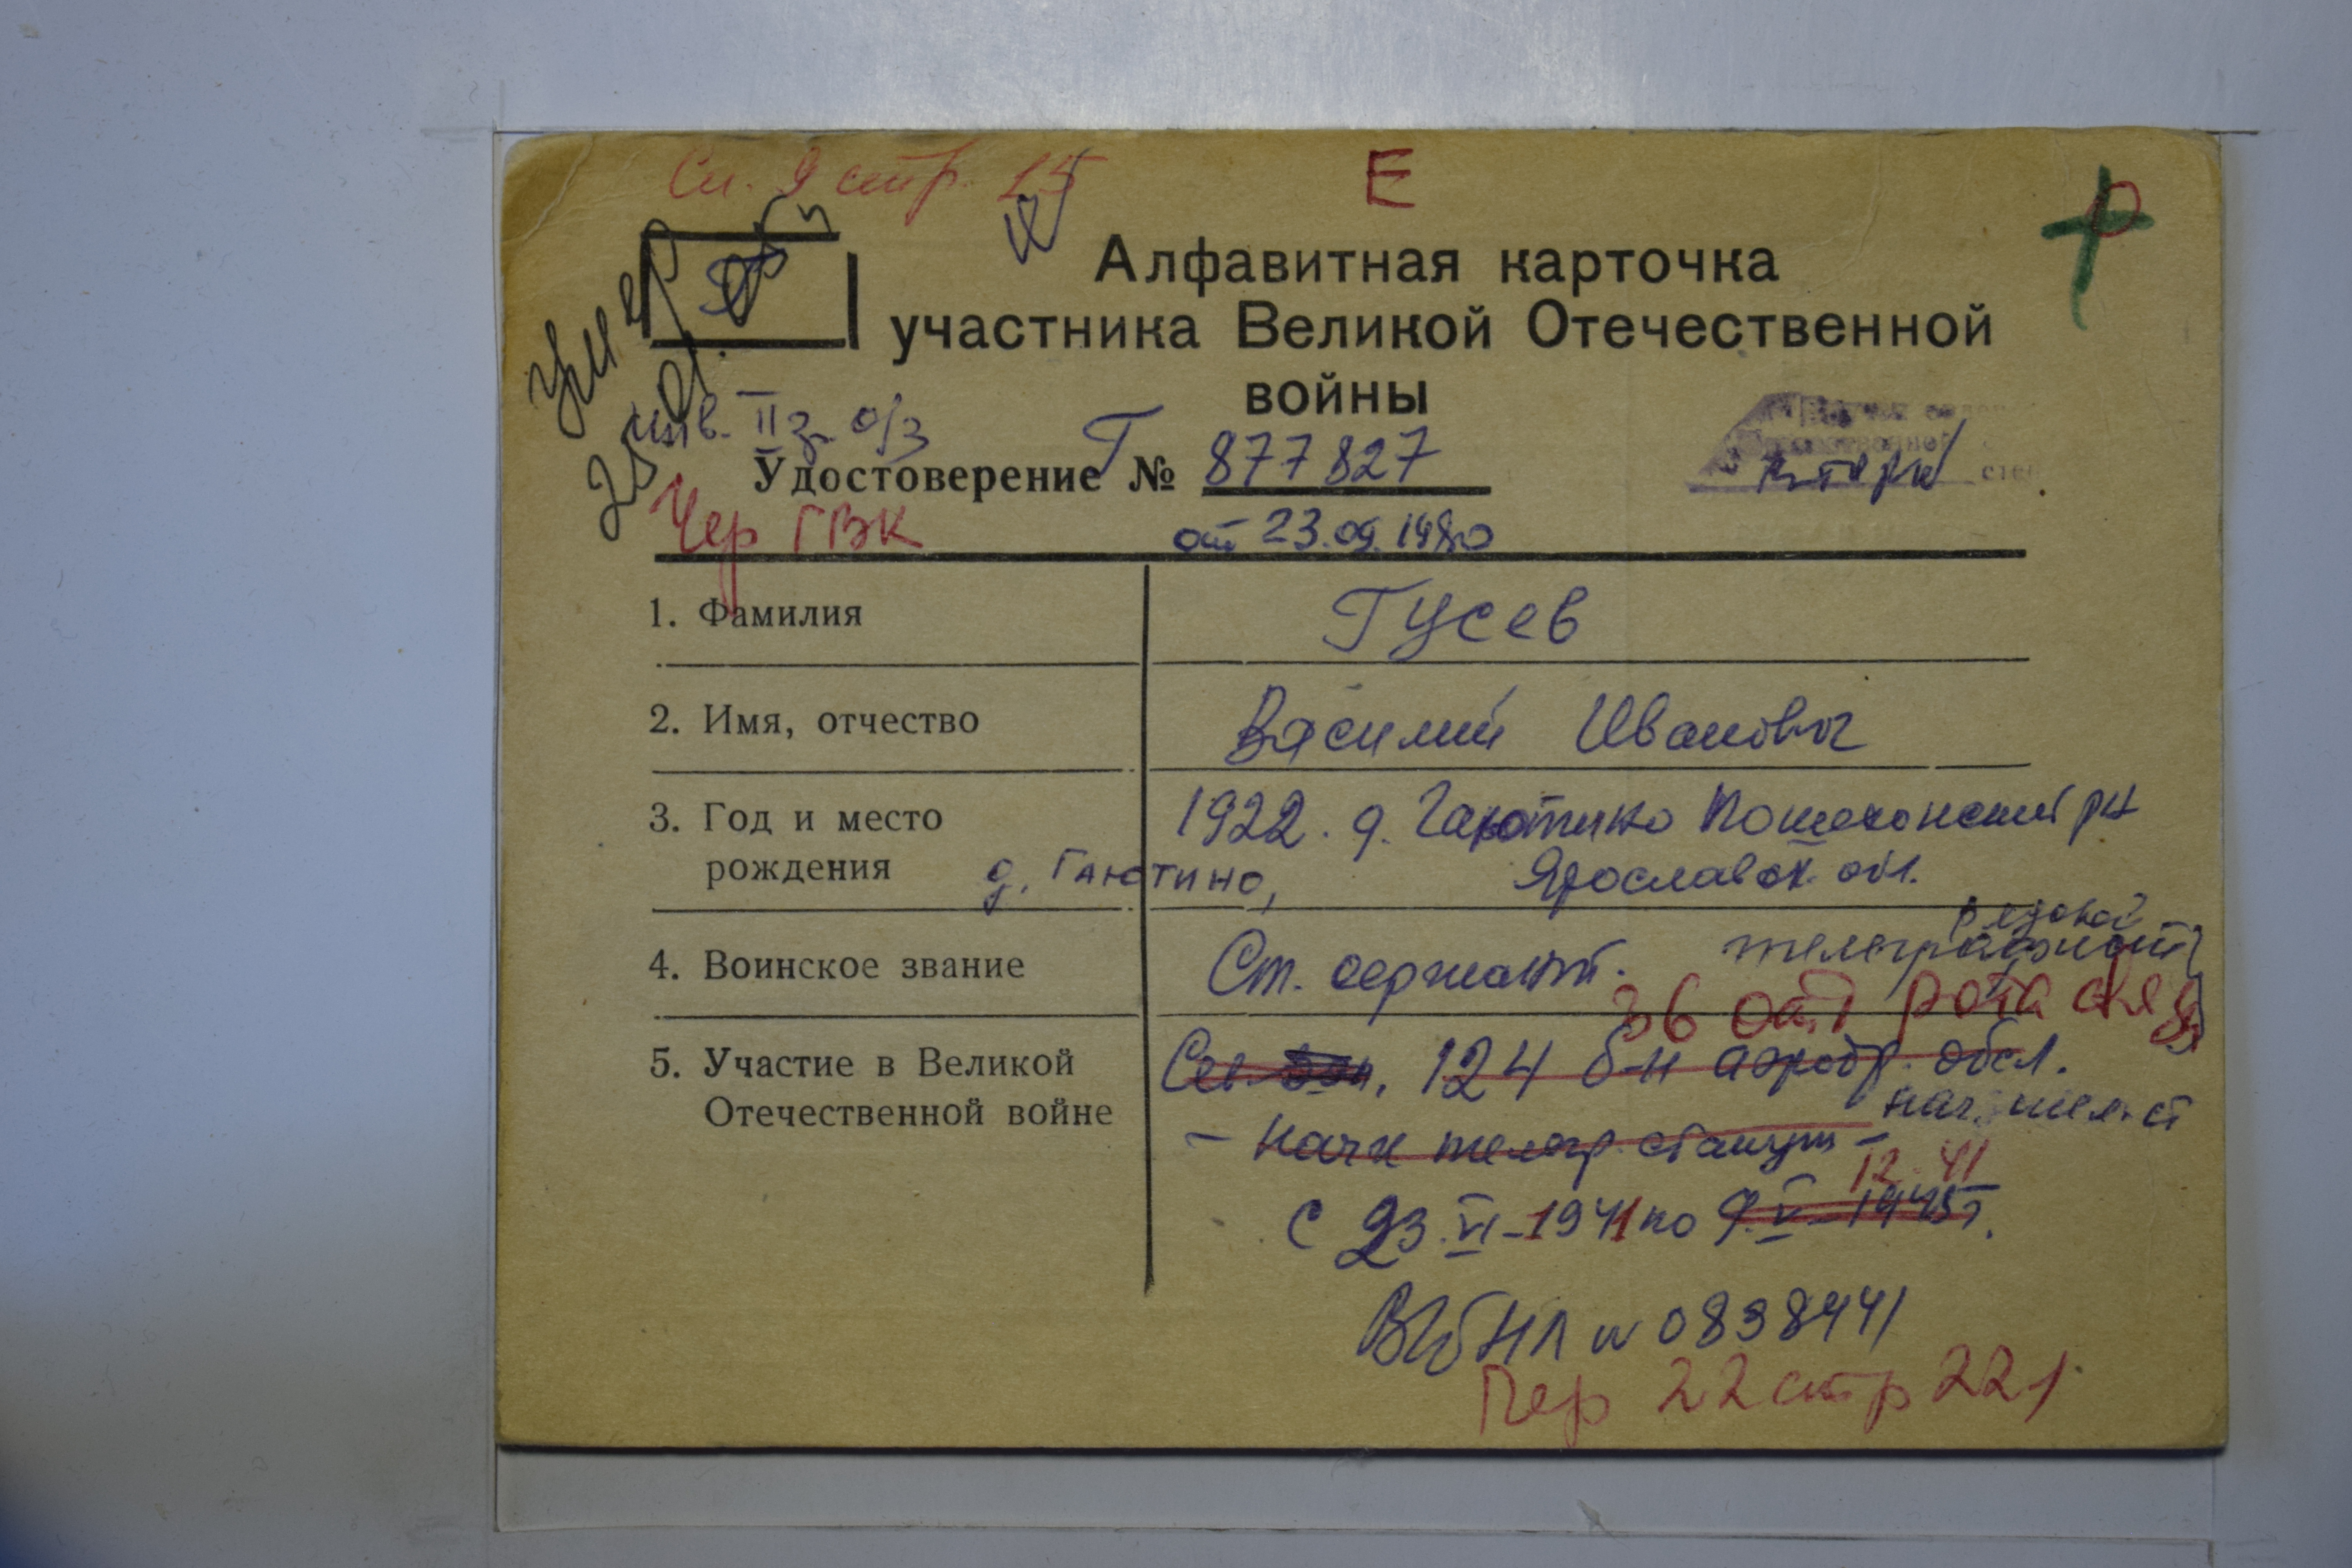 Сп. 9 стр. 15
Е
Р
умер
Алфавитная карточка
участника Великой Отечественной
войны
инв. II гр. о/з
Удостоверение Г № 877827
Чер ГВК
от 23.09.1980
1. Фамилия Гусев
2. Имя, отчество Василий Иванович
3. Год и место 1922. д. Гаютино Пошехонский рн
рождения д. Гаютино, Ярославск. обл.
рядовой
4. Воинское звание Ст. сержант. телеграфист
36 отд рота связи
5. Участие в Великой 124 б-н аэродр. обсл.
Отечественной войне нач. тел. ст
- начк телегр. станции -
12. 41
с 23.VI-1941 по 9.V-1945г.
НЛ № 0838441
Пер 22 стр 221